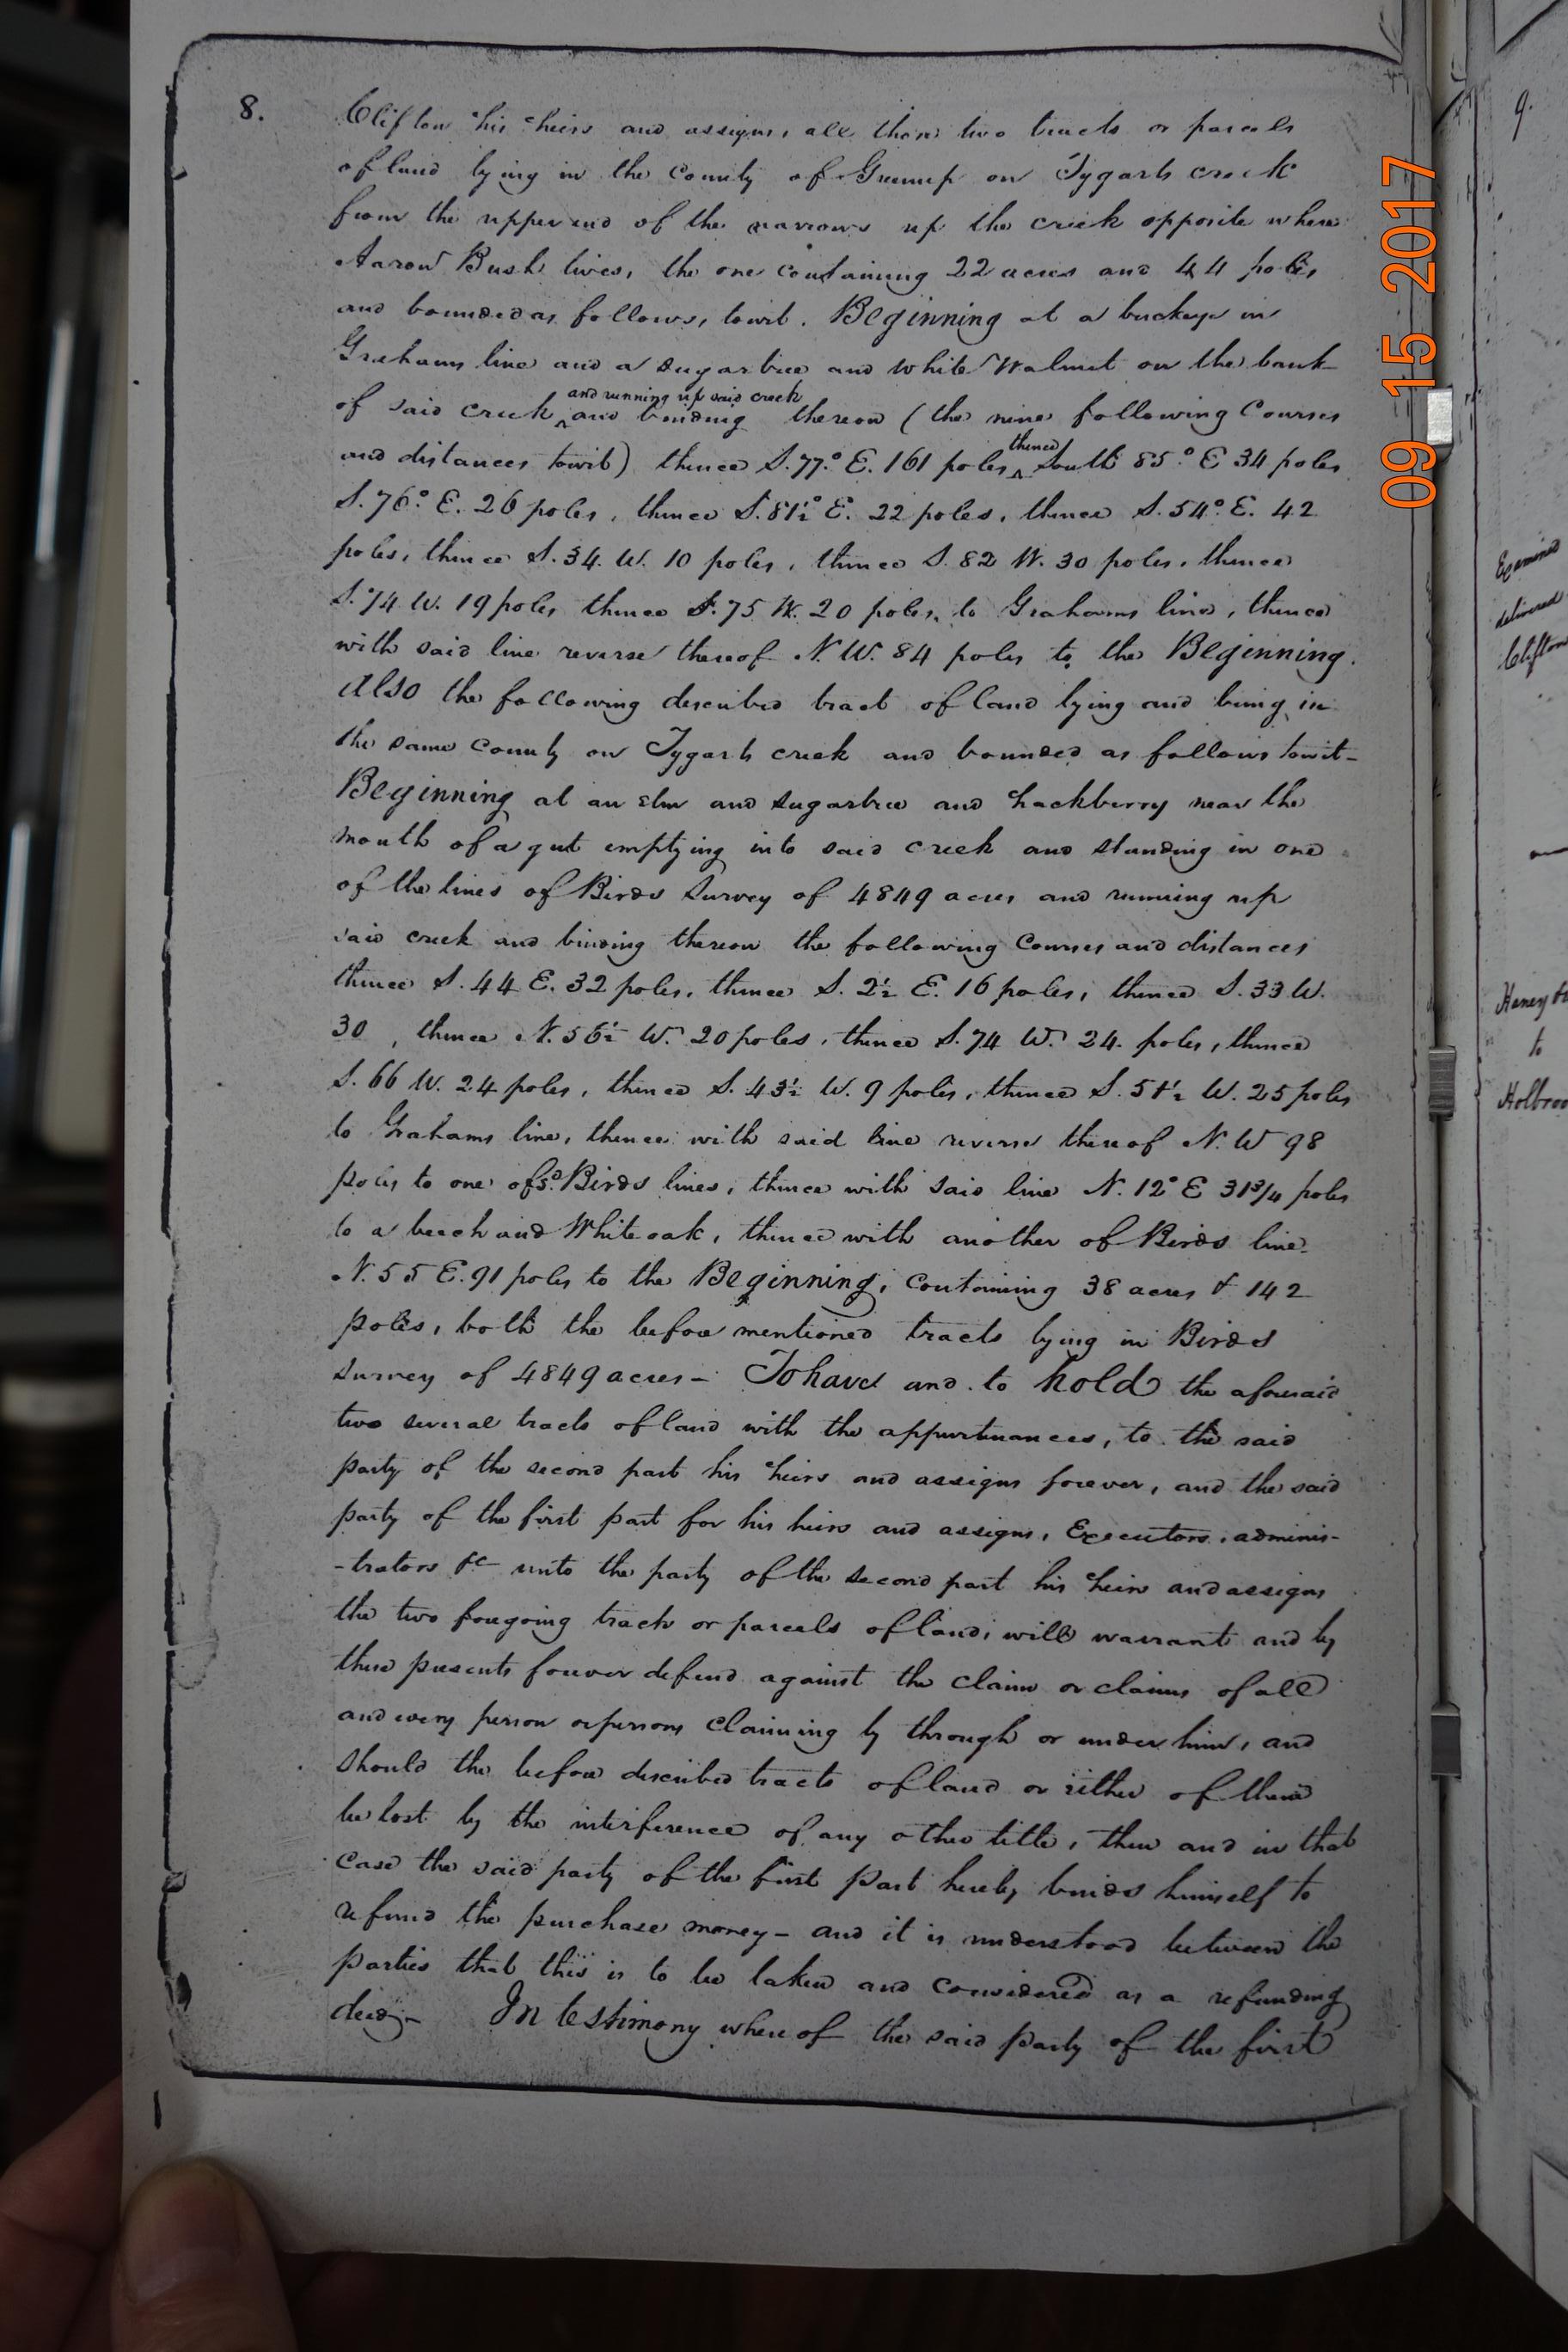 8.
Clifton his heirs and assigns, all those two tracts or parcels
of land lying in the County of Greenup on Tygarts creek
from the upper end of the narrows up the creek opposite where
Aaron Bush lives, the one containing 22 acres and 44 poles
and bounded as follows, towit. Beginning at a buckeye in
Grahams line and a sugartree and white Walnut on the bank
of said creek ^ and running up said creek and binding thereon (the nine following Courses
and distances towit) thence S. 77.° E. 161 poles ^ thence South 85.° E 34 poles
S. 76.° E. 26 poles, thence S. 81½° E. 22 poles, thence S. 54° E. 42
poles, thence S. 34. W. 10 poles, thence S. 82 W. 30 poles, thence
S. 74 W. 19 poles thence S. 75 W. 20 poles, to Grahams line, thence
with said line reverse thereof N. W. 84 poles to the Beginning.
Also the following described tract of land lying and being in
the same County on Tygarts creek and bounded as follows towit-
Beginning at an elm and sugartree and hackberry near the
mouth of a gut emptying into said creek and standing in one
of the lines of Birds Survey of 4849 acres and running up
said creek and binding thereon the following Courses and distances
thence S. 44 E. 32 poles, thence S. 2½ E. 16 poles, thence S. 33 W.
30, thence N. 56½ W. 20 poles, thence S. 74 W. 24. poles, thence
S. 66 W. 24 poles, thence S. 43½ W. 9 poles, thence S. 51½ W. 25 poles
to Grahams line, thence with said line reverse thereof N. W 98
poles to one of sd. Birds lines, thence with said line N. 12° E 31 3/4 poles
to a beech and White oak, thence with another of Birds line
N. 55 E. 91 poles to the Beginning, Containing 38 acres & 142
poles, both the before mentioned tracts lying in Birds
survey of 4849 acres- To have and to hold the aforesaid
two several tracts of land with the appurtenances, to the said
party of the second part his heirs and assigns forever, and the said
party of the first part for his heirs and assigns, Executors, adminis-
-trators &c unto the party of the second part his heirs and assigns
the two foregoing tracts or parcels of land, will warrant and by
these presents forever defend against the claim or claims of all
and every person or persons Claiming by through or under him, and
should the before described tracts of land or either of them
be lost by the interference of any other title, then and in that
Case the said party of the first Part hereby binds himself to
refund the purchase money- and it is understood between the
parties that this is to be taken and Considered as a refunding
deed.- In testimony whereof the said Party of the first
09 15 2017
9.
Examined
delivered
Clifton
Henry
to